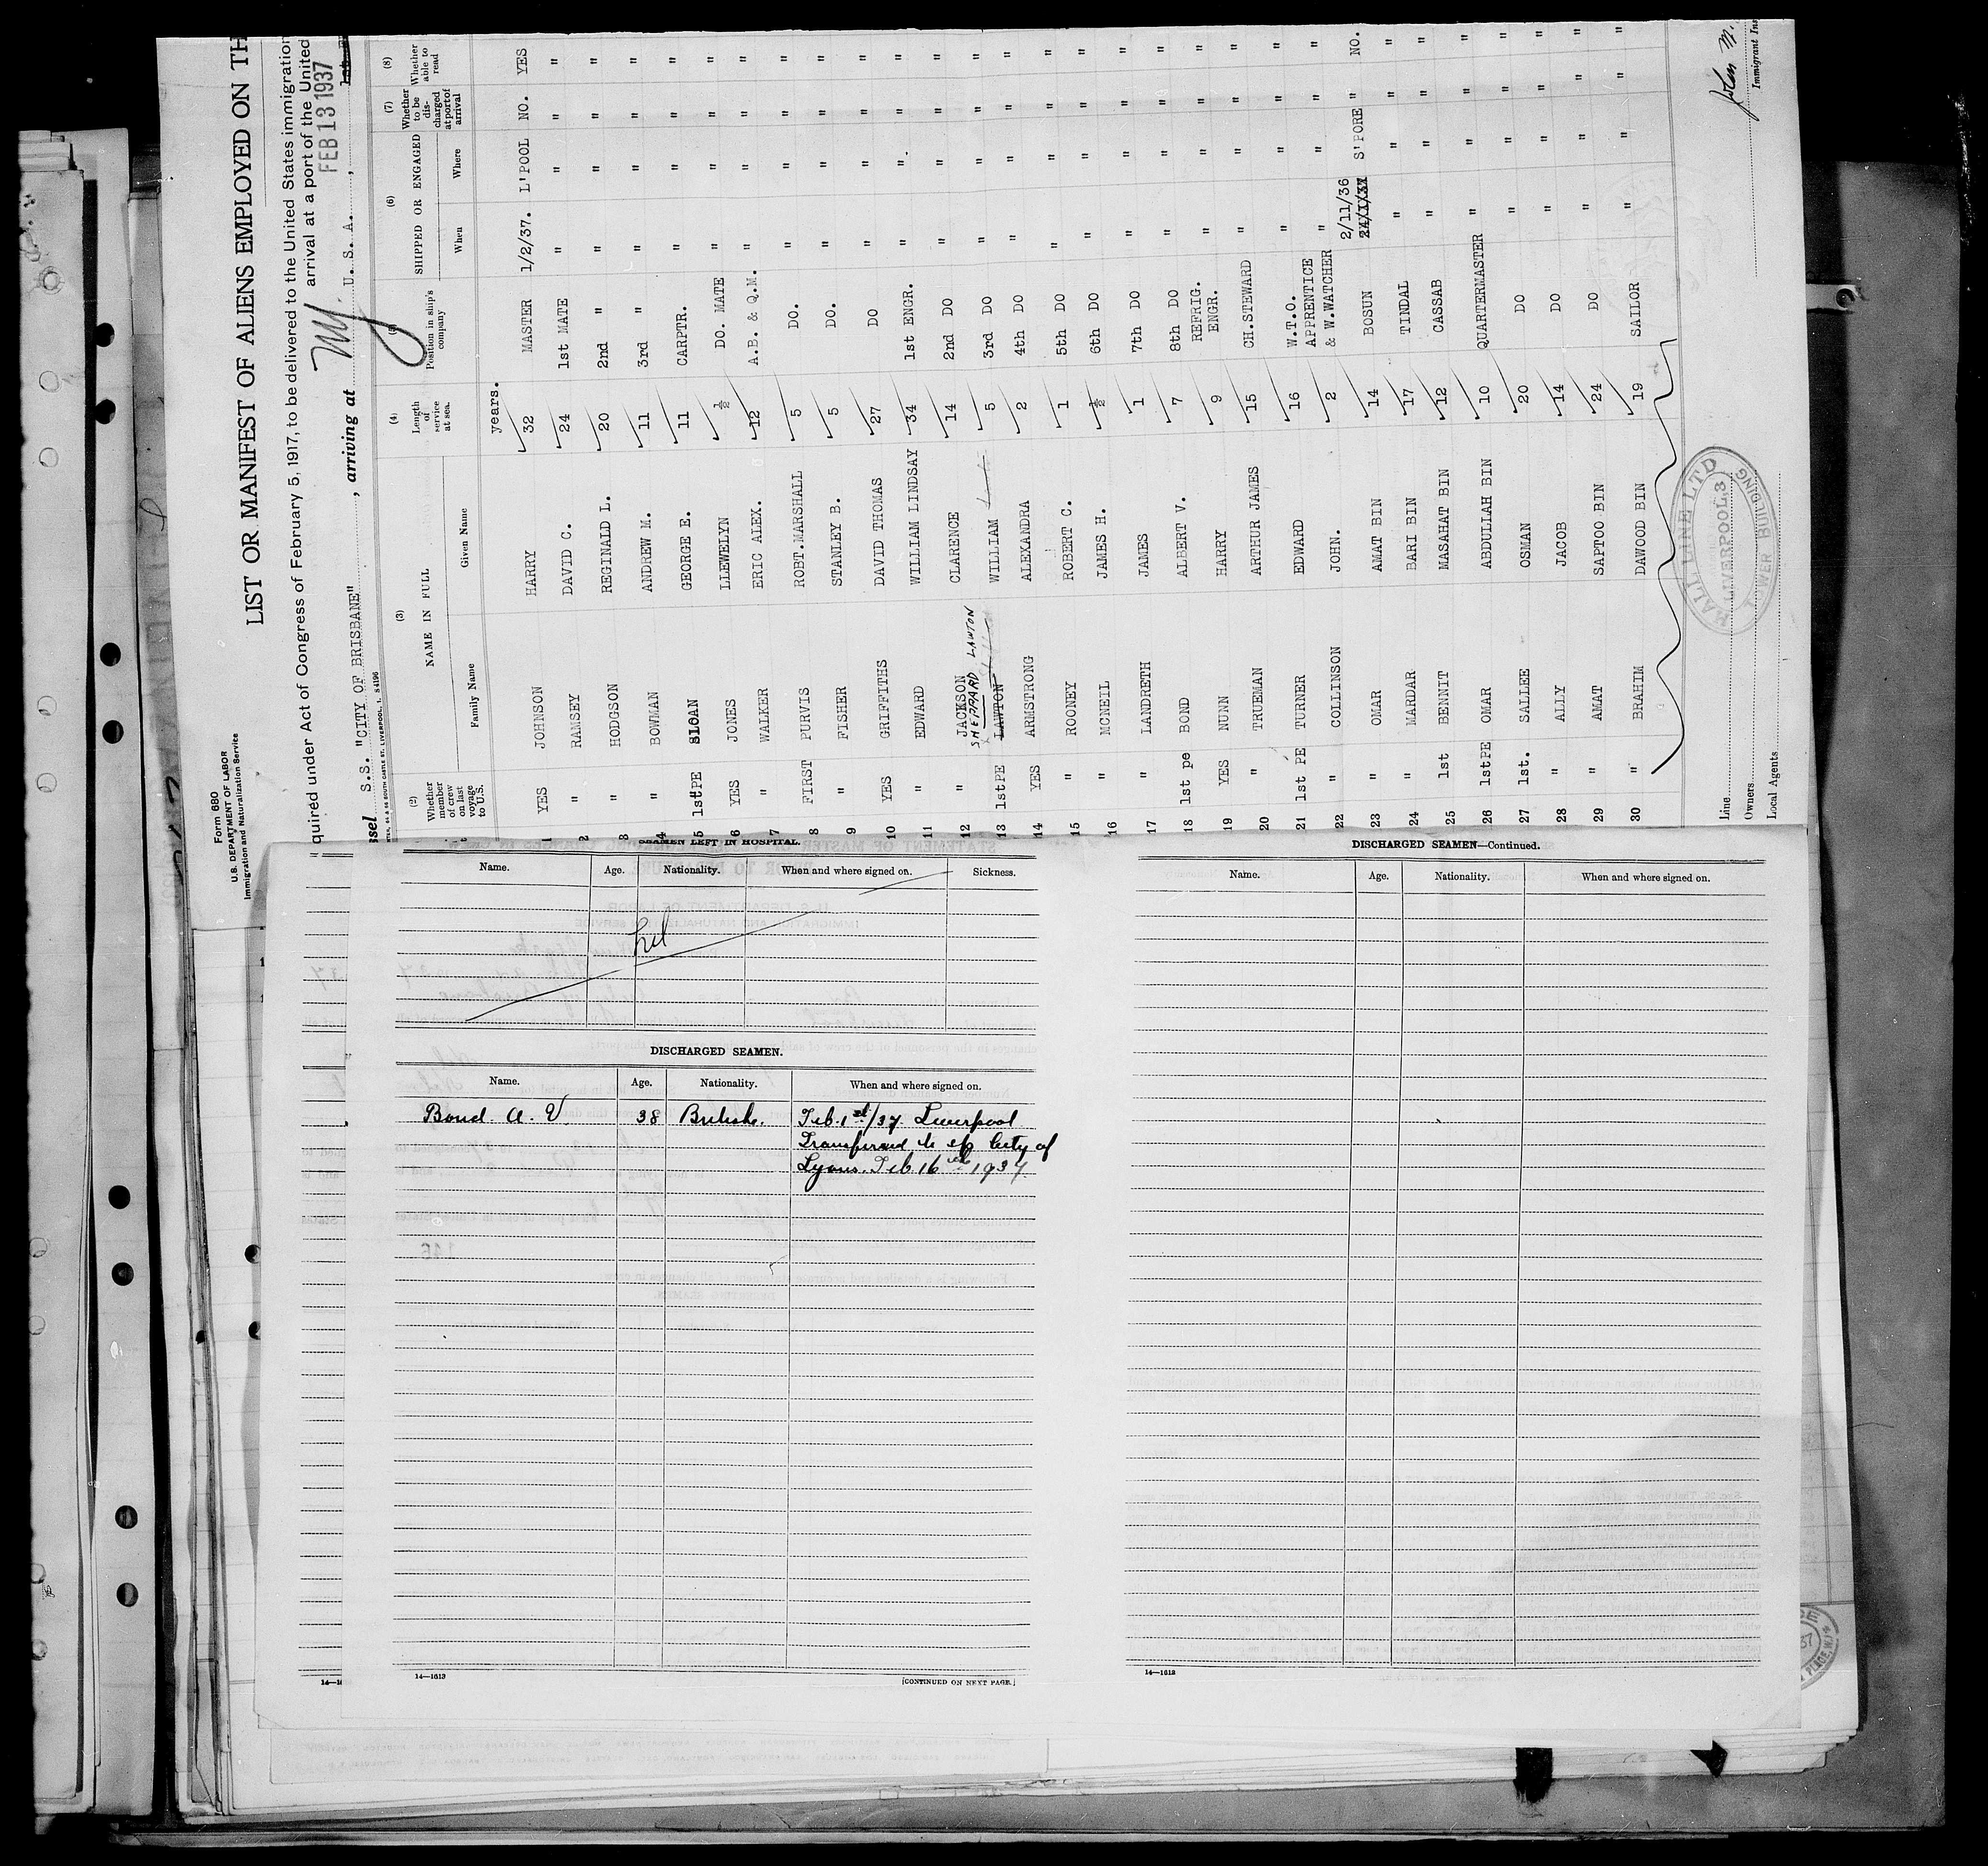 Form 680
U.S. DEPARTMENT OF LABOR
Immigration and Naturalization Service
LIST OR MANIFEST OF ALIENS EMPLOYED ON TH
quired under Act of Congress of February 5, 1917, to be delivered to the United States immigration
arrival at a port of the United
FEB 13 1937
ssel S.S. "CITY OF BRISBANE" , arriving at NY U. S. A. ,
(2) (3) (4) (5) (6) (7) (8)
Whether member of crew on last voyage to U.S. NAME IN FULL Family Name Given Name Length of service at sea. Position in ship's company SHIPPED OR ENGAGED When Where Whether to be discharged at port of arrival Whether able to read
years.
1 YES JOHNSON HARRY 32 MASTER 1/2/37. L'POOL NO. YES
2 " RAMSEY DAVID C. 24 1st MATE " " " "
3 " HODGSON REGINALD L. 20 2nd " " " " "
4 " BOWMAN ANDREW M. 11 3rd " " " " "
5 1stPE SLOAN GEORGE E. 11 CARPTR. " " " "
6 YES JONES LLEWELYN ½ DO. MATE " " " "
7 " WALKER ERIC ALEX. 12 A.B. & Q.M. " " " "
8 FIRST PURVIS ROBT.MARSHALL 5 DO. " " " "
9 " FISHER STANLEY B. 5 DO. " " " "
10 YES GRIFFITHS DAVID THOMAS 27 DO " " " "
11 " EDWARD WILLIAM LINDSAY 34 1st ENGR. " " " "
12 " JACKSON CLARENCE 14 2nd DO " " " "
SHEPPARD LAWTON
13 1stPE LAWTON WILLIAM 5 3rd DO " " " "
14 YES ARMSTRONG ALEXANDRA 2 4th DO " " " "
15 " ROONEY ROBERT C. 1 5th DO " " " "
16 " MCNEIL JAMES H. ½ 6th DO " " " "
17 " LANDRETH JAMES 1 7th DO " " " "
18 1st pe BOND ALBERT V. 7 8th DO " " " "
19 YES NUNN HARRY 9 REFRIG. ENGR. " " " "
20 " TRUEMAN ARTHUR JAMES 15 CH.STEWARD " " " "
21 1st PE TURNER EDWARD 16 W.T.O. " " " "
22 " COLLINSON JOHN. 2 APPRENTICE & W.WATCHER " " " "
23 " OMAR AMAT BIN 14 BOSUN 2/11/36 S'PORE " NO.
24 " MARDAR BARI BIN 17 TINDAL " " " "
25 1st BENNIT MASAHAT BIN 12 CASSAB " " " "
26 1stPE OMAR ABDULLAH BIN 10 QUARTERMASTER " " " "
27 1st. SALLEE OSMAN 20 DO " " " "
28 " ALLY JACOB 14 DO " " " "
29 " AMAT SAPTOO BIN 24 DO " " " "
30 " BRAHIM DAWOOD BIN 19 SAILOR " " " "
HALL LINE LTD
LIVERPOOL,3
TOWER BUILDING
Line
Owners
Local Agents
John M.
Immigrant Ins
SEAMEN LEFT IN HOSPITAL.
Name. Age. Nationality. When and where signed on. Sickness.
nil
DISCHARGED SEAMEN.
Name. Age. Nationality. When and where signed on.
Bond A. V. 38 British. Feb. 1st/37 Liverpool
Transferred to s/s City of
Lyons. Feb. 16th 1937.
14—1613
[CONTINUED ON NEXT PAGE.]
DISCHARGED SEAMEN—Continued.
Name. Age. Nationality. When and where signed on.
14—1613